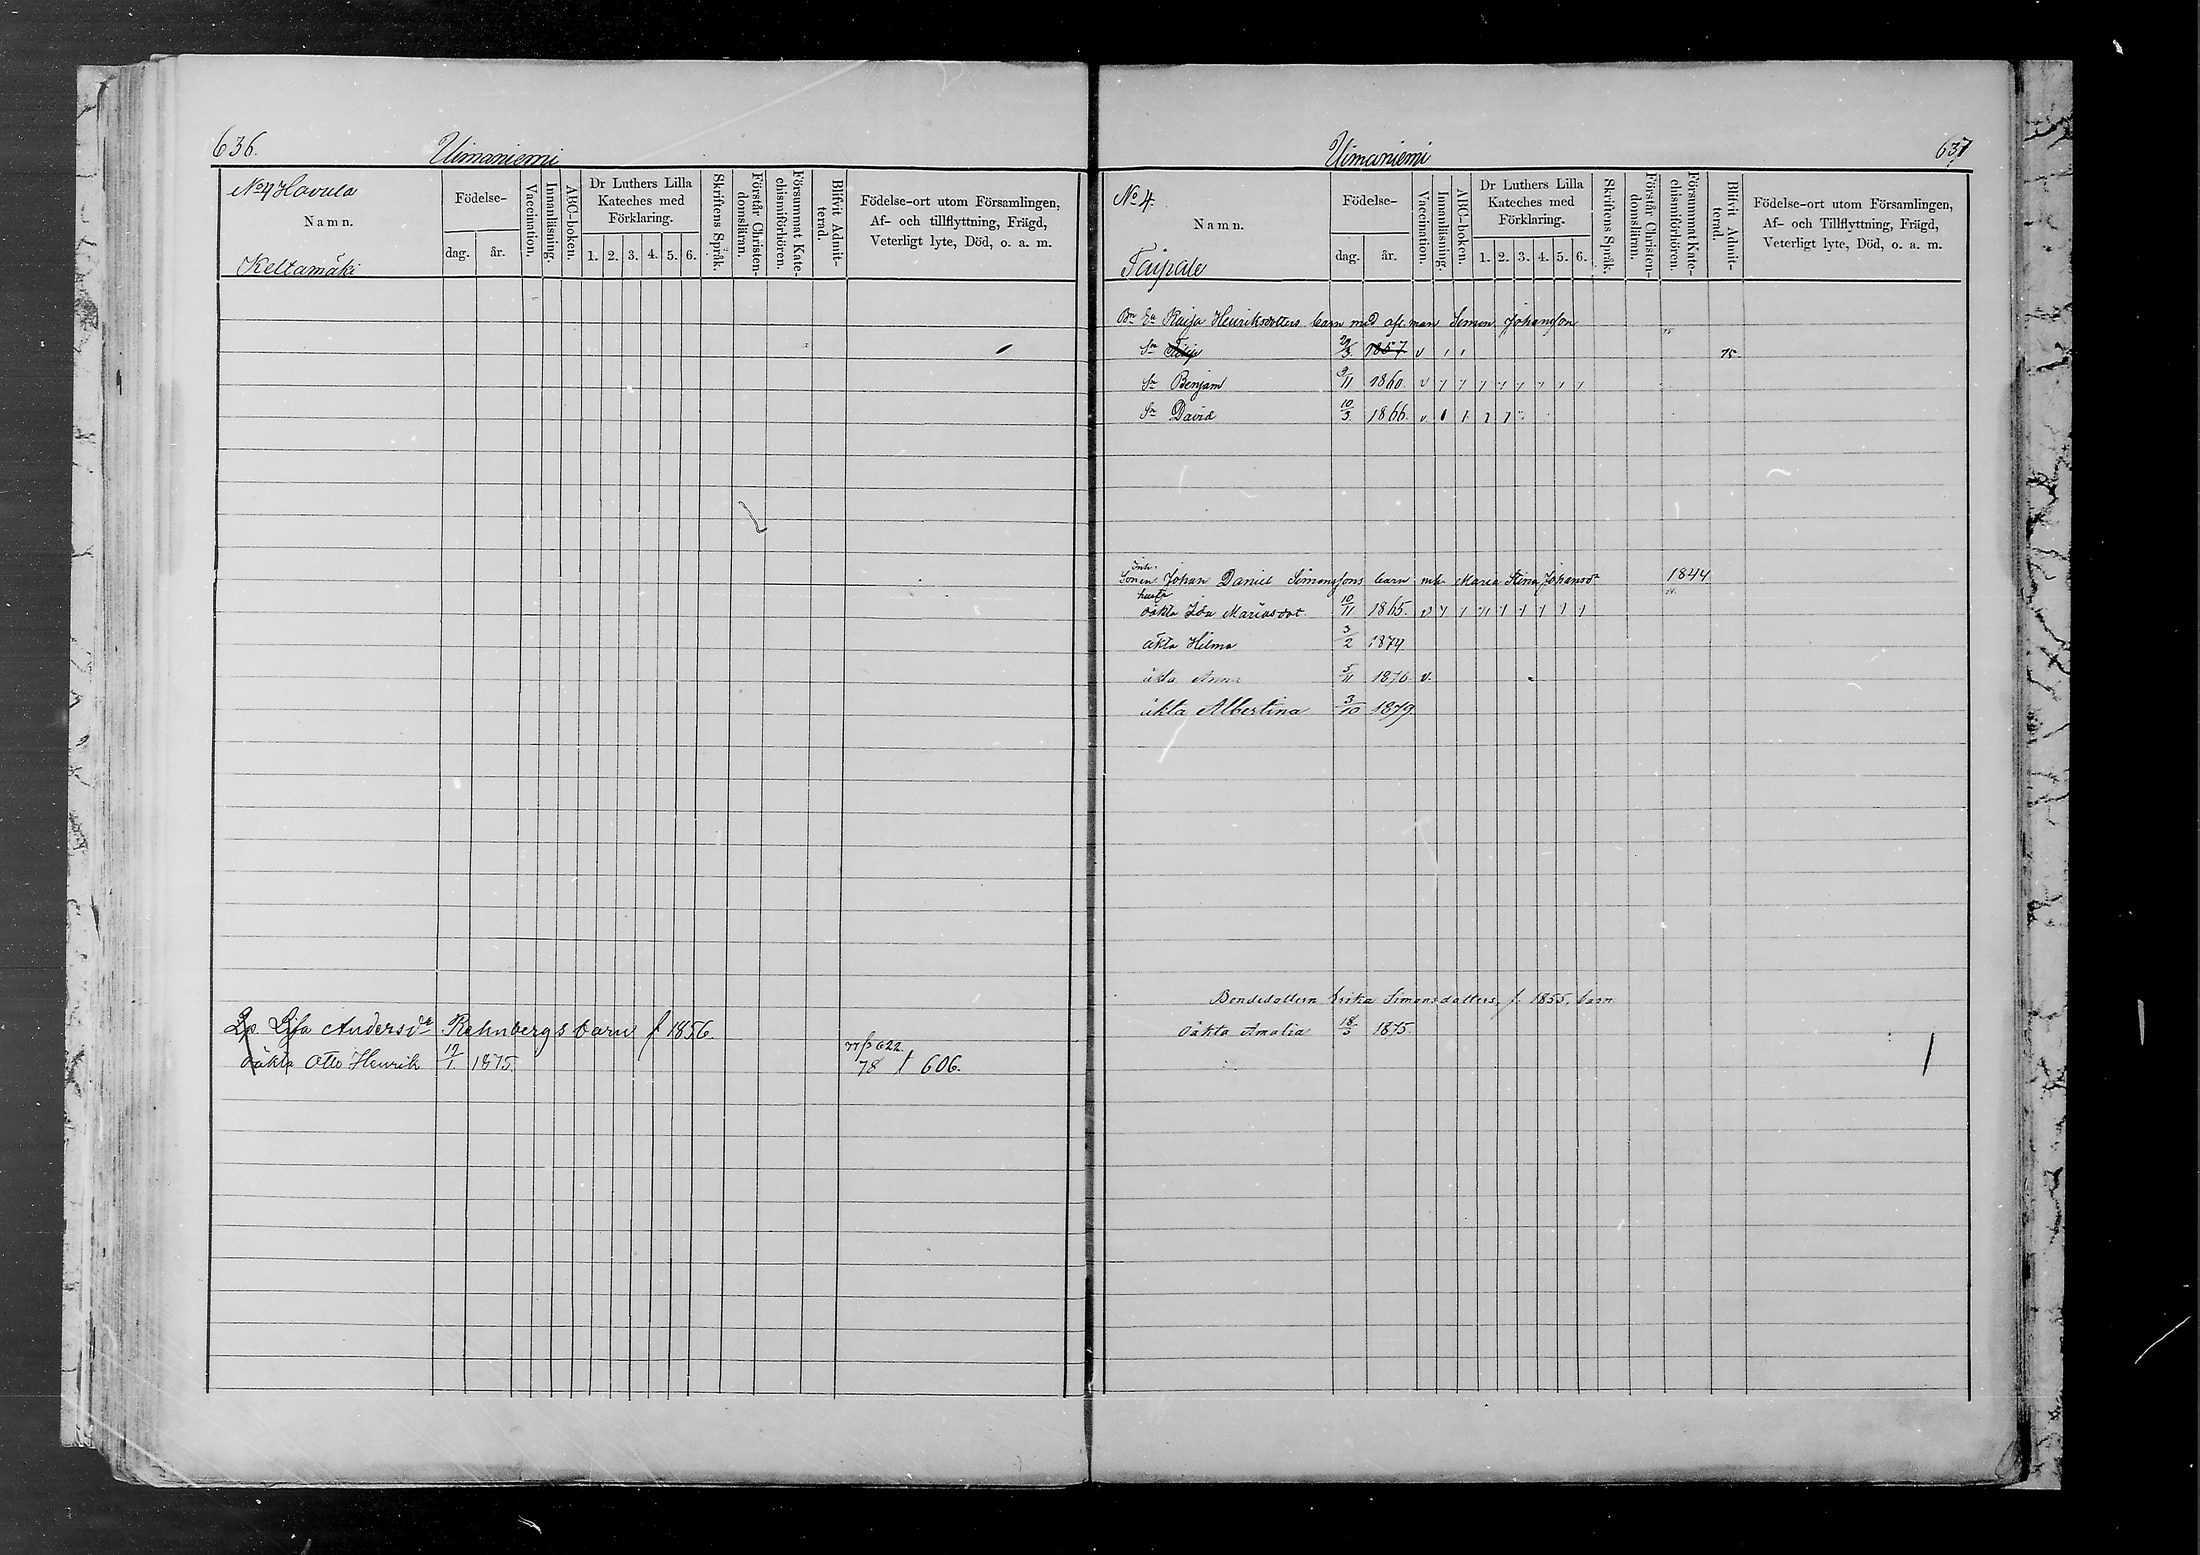 636.
Uimaniemi
No 4 Havula
Namn.
Keltamäki
Födelse-
dag.
år.
Vaccination.
Innanläsning.
ABC-boken.
Dr Luthers Lilla
Kateches med
Förklaring.
1. 2. 3. 4. 5. 6.
Skriftens Språk.
Förstår Christen-
domsläran.
Försummat Kate-
chismiförhören.
Blifvit Admit-
terad.
Födelse-ort utom Församlingen,
Af- och tillflyttning, Frägd,
Veterligt lyte, Död, o. a. m.
Lp. Lisa Andersdt Rehnbergs barn f 1856.
77 p 622.
oäkta Otto Henrik 17/1. 1875. 78 / 606.
Uimaniemi
637
No 4.
Namn.
Taipale
Födelse-
dag.
år.
Vaccination.
Innanläsning.
ABC-boken.
Dr Luthers Lilla
Kateches med
Förklaring.
1. 2. 3. 4. 5. 6.
Skriftens Språk.
Förstår Christen-
domsläran.
Försummat Kate-
chismiförhören.
Blifvit Admit-
terad.
Födelse-ort utom Församlingen,
Af- och Tillflyttning, Frägd,
Veterligt lyte, Död, o. a. m.
Bn Ea Kaisa Henriksdotters barn med afl. man Simon Johansson
Sn Filip 29/3 1857 v 75.
Sn Benjam 9/11 1860. v
Sn David 10/3. 1866. v.
Inh.
Sonen. Johan Daniel Simonssons barn m h Maria Stina Johansdt 1844
hustr
oäkta Ida Mariasdot. 10/11 1865. v
äkta Helma 3/2 1874
äkta Anna 5/11 1876 v.
äkta Albertina 3/10 1879
Bondedottern Erika Simonsdotters, f. 1855, barn
Oäkta Amalia 18/3 1875.